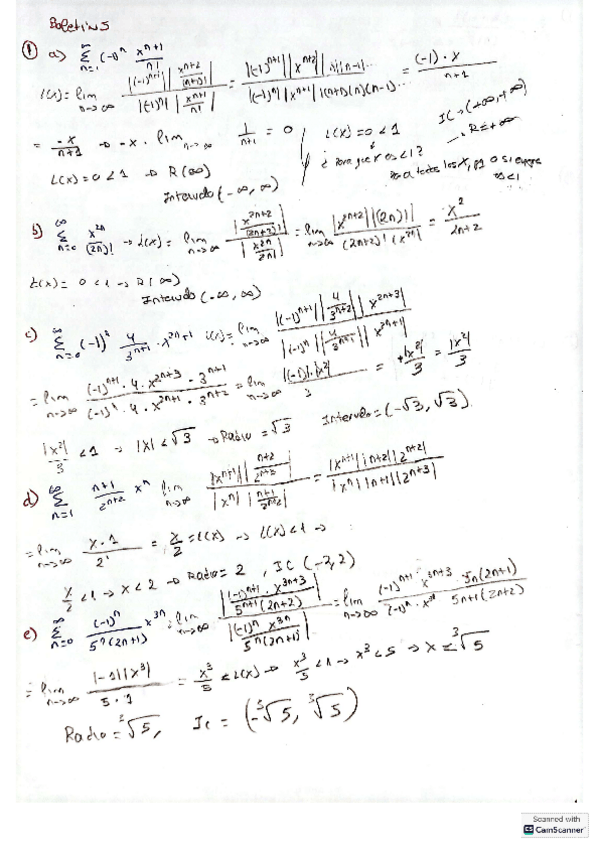 Boletín 5
① a) ∑_{n=1}^{∞} (-1)^n x^{n+1}/n!
L(x) = lim_{n→∞} |(-1)^{n+1}| |x^{n+2}/(n+1)!| / |(-1)^n| |x^{n+1}/n!| = |(-1)^{n+1}| |x^{n+2}| / |(-1)^n| |x^{n+1}| = (-1)·x / n+1
= -x/n+1 → -x · lim_{n→∞} 1/n+1 = 0 L(x) = 0 < 1 IC → (+∞, +∞) → R = +∞
L(x) = 0 < 1 → R(∞) ¿ es < 1? para todos los x,
Intervalo (-∞, ∞)
b) ∑_{n=0}^{∞} x^{2n}/(2n)! → L(x) = lim_{n→∞} |x^{2n+2}/(2n+2)!| / |x^{2n}/2n!| = lim_{n→∞} |x^{2n+2}| |(2n)!| / (2n+2)! (x^{2n}) = x^2/2n+2
L(x) = 0 < 1 → R(∞)
Intervalo (-∞, ∞)
c) ∑_{n=0}^{∞} (-1)^n 4/3^{n+1} · x^{2n+1} L(x) = lim_{n→∞} |(-1)^{n+1}| |4/3^{n+2}| |x^{2n+3}| / |(-1)^n| |4/3^{n+1}| |x^{2n+1}|
= lim_{n→∞} (-1)^{n+1} · 4 · x^{2n+3} · 3^{n+1} / (-1)^n · 4 · x^{2n+1} · 3^{n+2} = lim_{n→∞} |(-1)| · |x^2| / 3 = |x^2|/3 = |x^2|/3
|x^2|/3 < 1 → |x| < √3 → Radio = √3 Intervalo = (-√3, √3)
d) ∑_{n=1}^{∞} n+1/2^{n+2} x^n lim_{n→∞} |x^{n+1}| |n+2/2^{n+3}| / |x^n| |n+1/2^{n+2}| = |x^{n+1}| |n+2| |2^{n+2}| / |x^n| |n+1| |2^{n+3}|
= lim_{n→∞} x·1/2 = x/2 = L(x) → L(x) < 1 →
x/2 < 1 → x < 2 → Radio = 2, IC (-2, 2)
e) ∑_{n=0}^{∞} (-1)^n/5^n(2n+1) x^{3n} = lim_{n→∞} |(-1)^{n+1} · x^{3n+3}/5^{n+1}(2n+2)| / |(-1)^n x^{3n}/5^n(2n+1)| = lim_{n→∞} (-1)^{n+1} x^{3n+3} · 5^n(2n+1) / (-1)^n · x^{3n} 5^{n+1}(2n+2)
= lim_{n→∞} |-1| |x^3| / 5·1 = x^3/5 = L(x) → x^3/5 < 1 → x^3 < 5 → x ≤ ∛5
Radio = ∛5, Ic = (-∛5, ∛5)
Scanned with
CamScanner